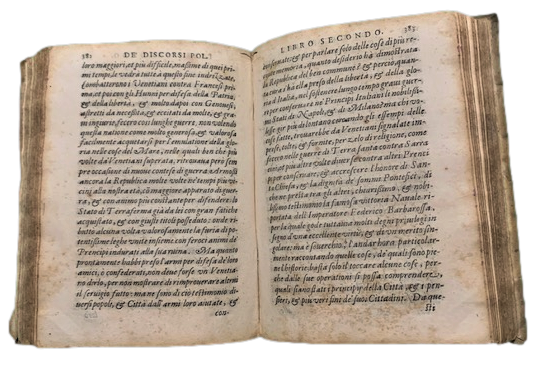 382 DE' DISCORSI POL.
loro maggiori, et più difficile, massimo di quei pri
mi tempi, le vedrà tutte à questo fine indrizzate.
Combatterono i Venetiani contra Francesi pri-
ma, et poi con gl'Hunni per difesa della Patria,
& della libertà, & molto dapoi con Genovesi,
astretti da necessità, & eccitati da molte, & gra
vi ingiurie, fecero così lunghe guerre, non volendo
questa natione come molto generosa, & valorosa
facilmente acquetarsi per l'emulatione della glo-
ria nelle cose del Mare, nelle quali ben che più
volte da' Venetiani superata, ritrovava però sem
pre occasione di nuova contesa di guerra: & mossi
ancora la Republica molte volte ne' tempi più vi-
cini alla nostra età, cõ maggiore apparato di guer-
ra, & con animo più costante per difendere lo
Stato di Terraferma già da lei con gran fatiche
acquistato, & con giusti titoli posseduto: onde ributtò
alcuna volta valorosamente la furia di po-
tentissime leghe unite insieme, con feroci animi de
Prencipi indurati alla sua ruina. Ma quanto
prontamente habbi preso l'armi per difesa de' loro
amici, ò confederati, non devo forse un Venetia-
no dirlo, per non mostrare di rimproverare altrui
il servigio fatto: ma ne fono di ciò testimonio di-
versi popoli, & Città dall'armi loro aiutate, &
con-
LIBRO SECONDO. 383
conservate, & per parlare solo delle cose di più re-
quanto desiderio ha dimostrato
la Republica del ben commune? & perciò, quan-
ha ella preso della libertà, & della glo-
ria d'Italia, nel sostenere lungo tempo gravi guer-
re per conservare ne' Principi Italiani li nobilissi-
mi Stati di Napoli, & di Milano? ma chi vo-
lesse ir più di lontano cercando gli essempi delle
cose fatte, troverebbe da Venetiani segnalate im-
prese tolte, & fornite, per zelo di religione, come
fecero nelle guerre di Terra santa contra Sara
ceni, et più altre volte contra altri Prencipi
per conservare, & accrescere l'honore di San-
ta Chiesa, & la dignità de' sommi Pontefici, di
che ne presta tra gli altri, chiarissimo, & nobi-
lissimo testimonio la famosa vittoria Navale ri-
portata dell'Imperatore Federico Barbarossa,
per la quale gode tuttavia molti degni privilegi in
segno d'una eccellente virtù, & de un merito sin-
golare: ma è soverchio l'andar hora particolar-
mente raccontando quelle cose, de quali sono pie-
ne l'historie, basta solo il toccare alcune cose, per-
che dalle sue operationi si possa comprendere,
quali siano stati i principij della Città, & i pen-
sieri, & più veri fini de' suoi Cittadini. Da que-
sti